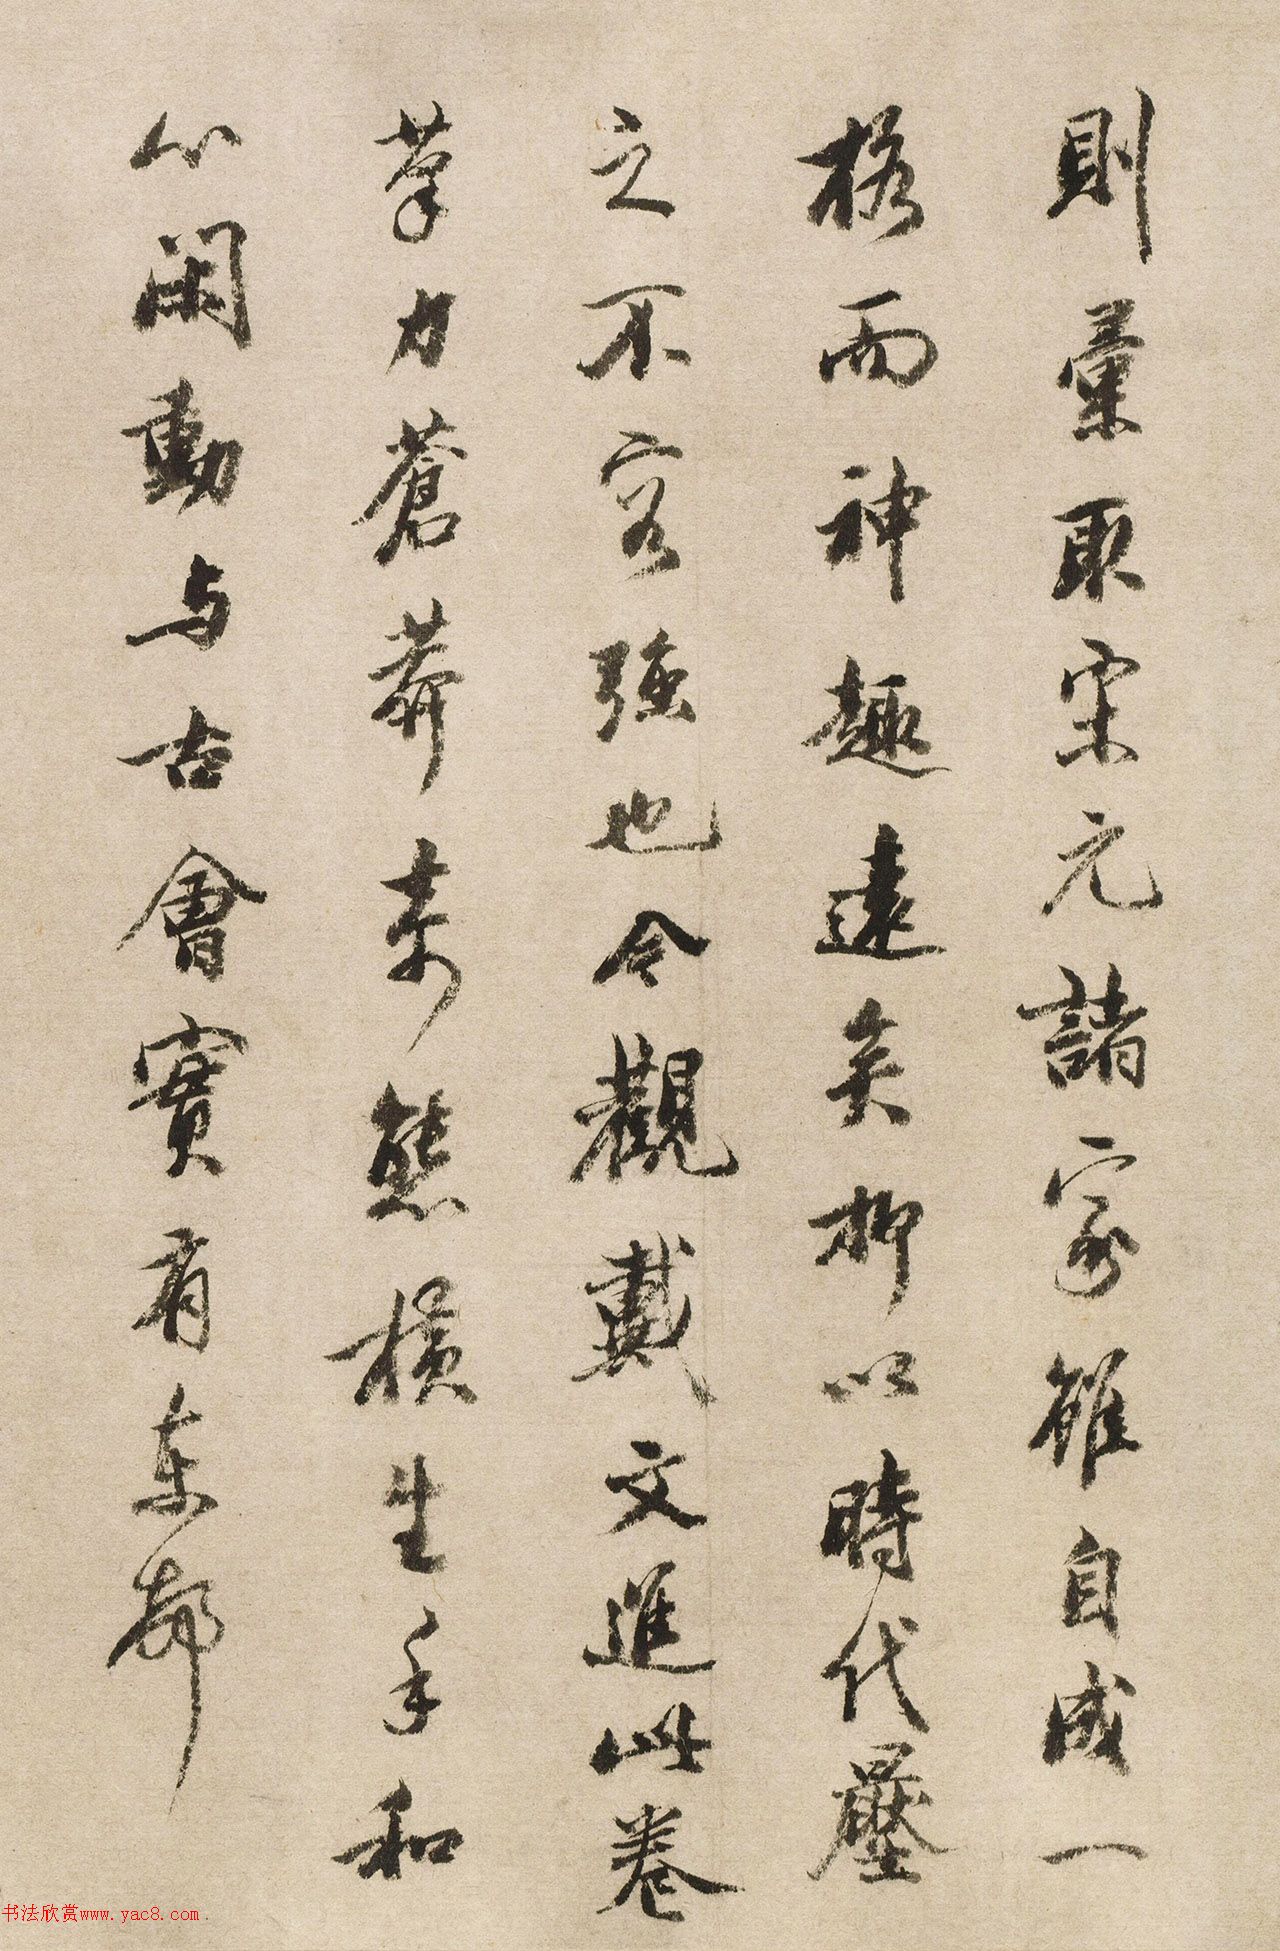 則彙取宋元諸家雖自成一
格而神趣遠矣抑以時代壓
之不容強也今觀戴文進此卷
筆力蒼莽素態橫生手和
心閑動与古會實有東都
书法欣赏www.yac8.com